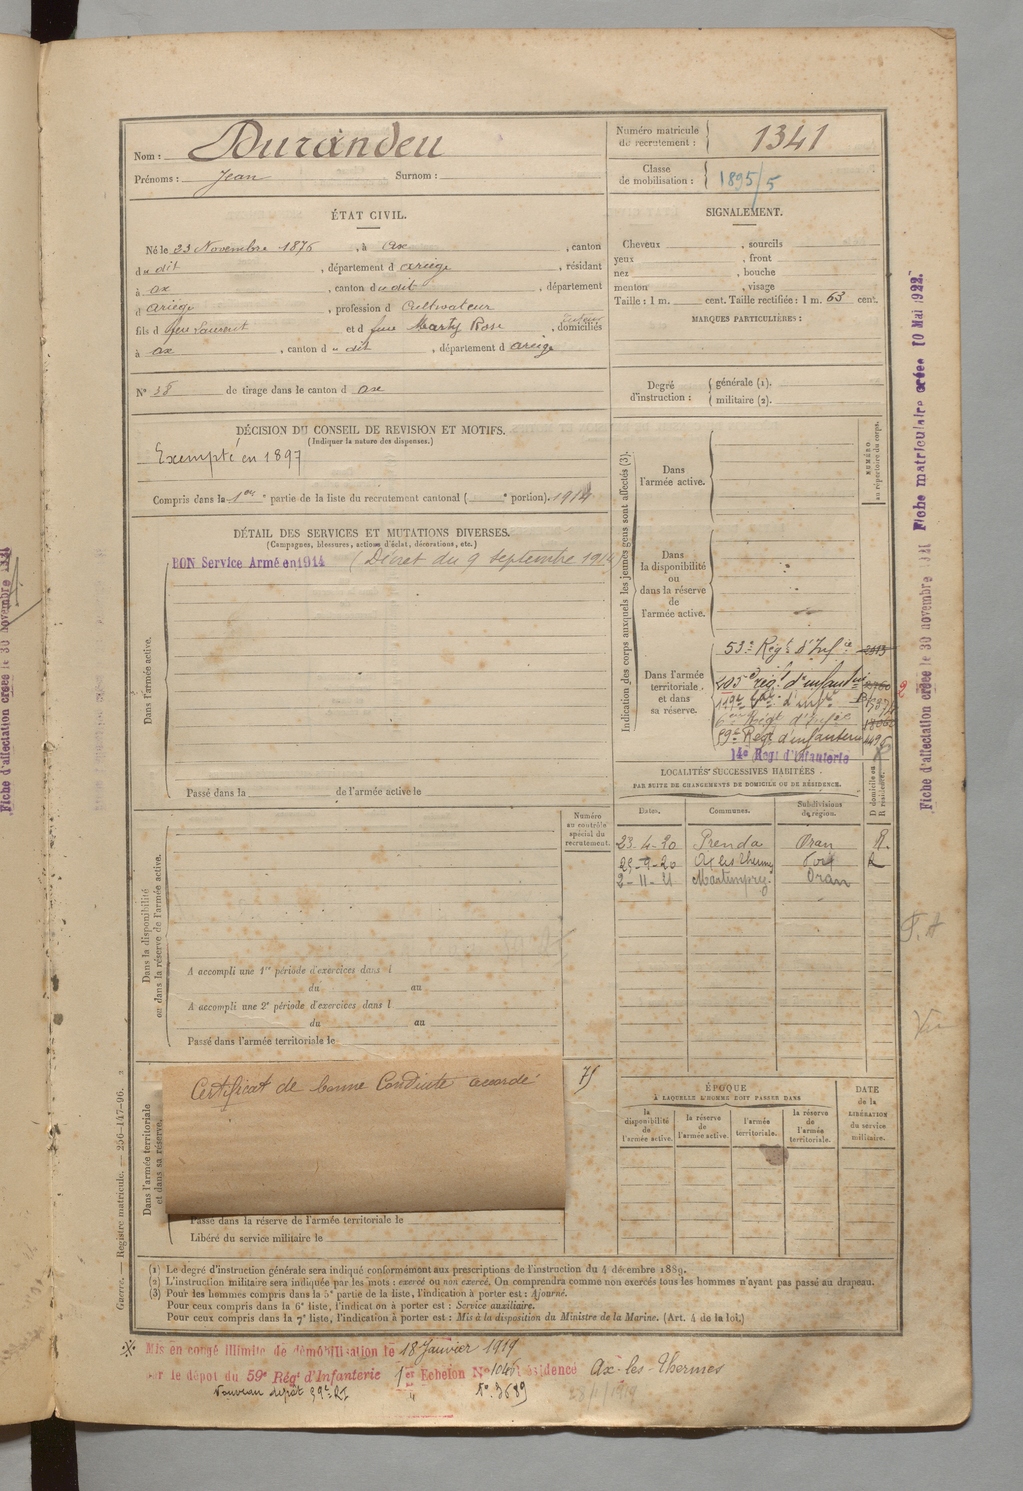 Nom : Durandeu
Prénoms : Jean Surnom :
Numéro matricule du recrutement : 1341
Classe de mobilisation : 1895/5
ÉTAT CIVIL.
Né le 23 Novembre 1876, à Ax, canton
du dit, département d Ariège, résidant
à ax, canton du dit, département
d Ariège, profession d Cultivateur
fils d feu Laurent et d feue Marty Rose, domiciliés
à ax, canton d u dit, département d ariège
N° 38 de tirage dans le canton d ax
SIGNALEMENT.
Cheveux , sourcils
yeux , front
nez , bouche
menton , visage
Taille : 1 m. cent. Taille rectifiée : 1 m. 63 cent.
MARQUES PARTICULIÈRES :
Degré d'instruction : générale (1).
militaire (2).
DÉCISION DU CONSEIL DE REVISION ET MOTIFS.
(Indiquer la nature des dispenses.)
Exempté en 1897
Compris dans la 1ère partie de la liste du recrutement cantonal ( e portion). 1914
DÉTAIL DES SERVICES ET MUTATIONS DIVERSES.
(Campagnes, blessures, actions d'éclat, décorations, etc.)
BON Service Armé en 1914 (Décret du 9 septembre 1914)
Dans l'armée active.
Passé dans la de l'armée active le
Indication des corps auxquels les jeunes gens sont affectés (3).
NUMÉRO au répertoire du corps.
Dans l'armée active.
Dans la disponibilité ou dans la réserve de l'armée active.
Dans l'armée territoriale et dans sa réserve.
53e Régt d'Infie
209e régt d'infanterie
119e d'Infie
6e Régt d'Infie
59e Régt d'infanterie
14e Régt d'Infanterie
LOCALITÉS SUCCESSIVES HABITÉES
PAR SUITE DE CHANGEMENTS DE DOMICILE OU DE RÉSIDENCE.
Dates. Communes. Subdivisions de région. D domicile ou R résidence.
23-4-20 Prenda Oran R.
25-9-20 Ax les Thermes Foix R
2-11-21 Martimprey Oran
Numéro au contrôle spécial du recrutement.
Dans la disponibilité ou dans la réserve de l'armée active.
A accompli une 1re période d'exercices dans l
du au
A accompli une 2e période d'exercices dans l
du au
Passé dans l'armée territoriale le
Dans l'armée territoriale et dans sa réserve.
Certificat de bonne Conduite accordé
75
Passé dans la réserve de l'armée territoriale le
Libéré du service militaire le
ÉPOQUE
A LAQUELLE L'HOMME DOIT PASSER DANS
la disponibilité de l'armée active.
la réserve de l'armée active.
l'armée territoriale.
la réserve de l'armée territoriale.
DATE de la LIBÉRATION du service militaire.
(1) Le degré d'instruction générale sera indiqué conformément aux prescriptions de l'instruction du 4 décembre 1889.
(2) L'instruction militaire sera indiquée par les mots : exercé ou non exercé. On comprendra comme non exercés tous les hommes n'ayant pas passé au drapeau.
(3) Pour les hommes compris dans la 5e partie de la liste, l'indication à porter est : Ajourné.
Pour ceux compris dans la 6e liste, l'indication à porter est : Service auxiliaire.
Pour ceux compris dans la 7e liste, l'indication à porter est : Mis à la disposition du Ministre de la Marine. (Art. 4 de la loi.)
Mis en congé illimité de démobilisation le 18 Janvier 1919
sur le dépôt du 59e Régt d'Infanterie 1er Echelon N° 1046 résidence Ax-les-Thermes
Nouveau dépôt 59e RI N° 3689
28/1/1919
Guerre. — Registre matricule. — 256-147-96.
Fiche d'affectation créée le 30 novembre 1931 Fiche matriculaire créée 10 Mai 1922.
Fiche d'affectation créée le 30 novembre 1931
F. A
Vu